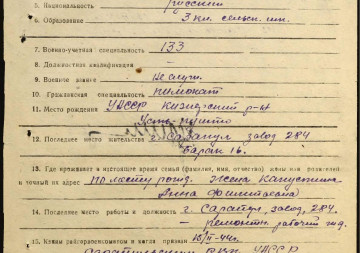 5. Национальность русский
6. Образование 3 кл. сельск. шк.
7. Военно-учетная специальность 133
8. Должностная квалификация —
9. Военное звание не служ.
10. Гражданская специальность пимокат
11. Место рождения УАССР Кизнерский р-н
12. Последнее место жительства г. Сарапул завод 284
барак 16.
13. Где проживает в настоящее время семья (фамилия, имя, отчество) жены или родителей
и точный их адрес по месту рожд. Жена
Анна
14. Последнее место работы и должность г. Сарапул, завод, 284.
рабочий
15. Каким райгорвоенкоматом и когда призван 18/II-44г.
РВК УАССР